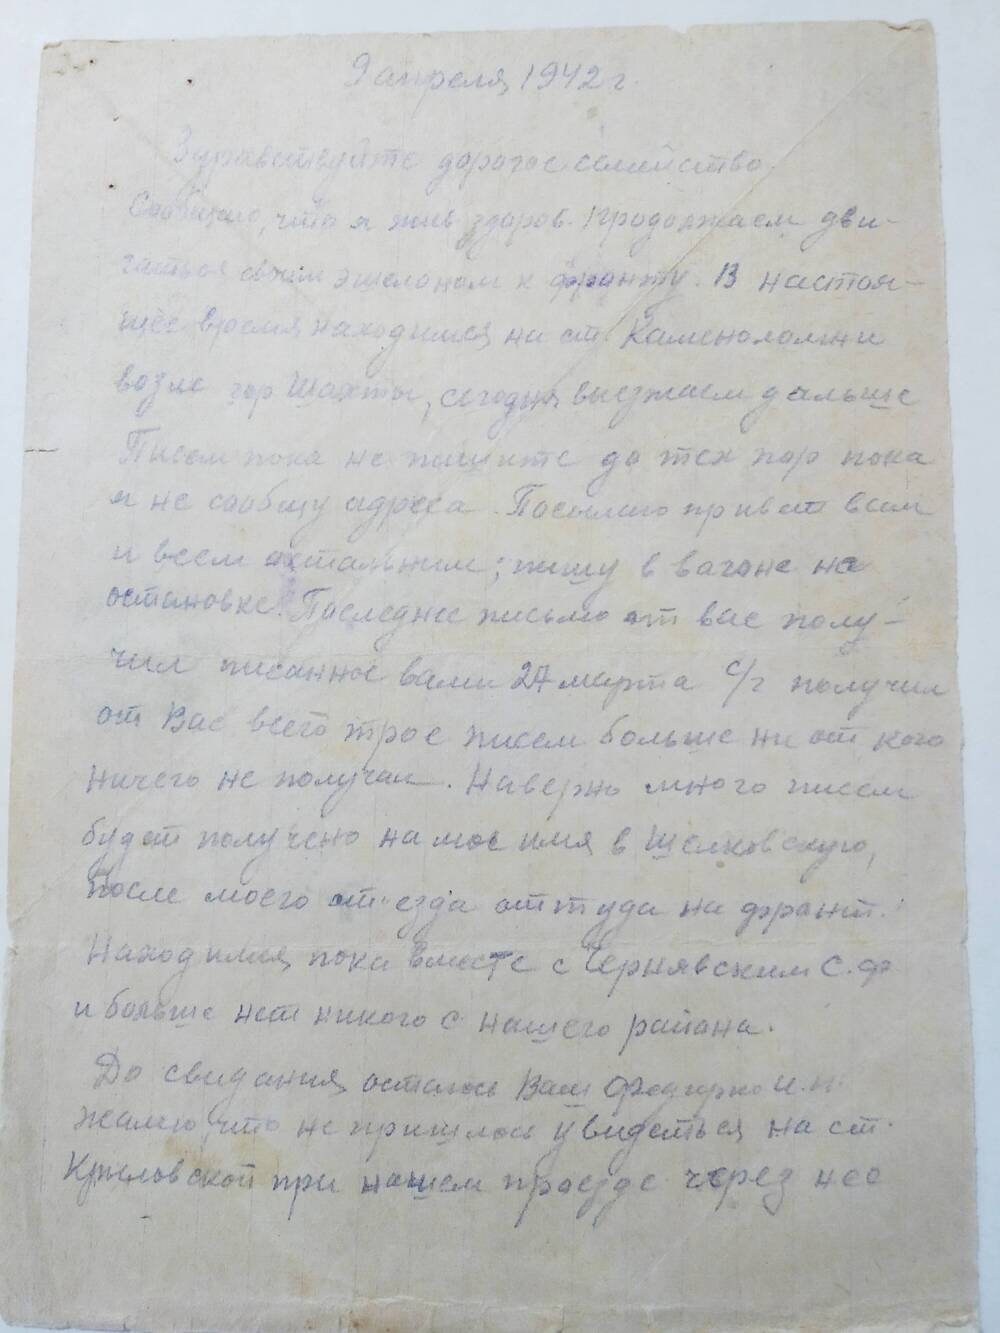 9 апреля 1942 г.
Здравствуйте дорогое семейство
Сообщаю, что я жив здоров. Продолжаем дви-
гаться своим эшелоном к фронту. В настоя-
щее время находимся на ст. Каменоломни
возле гор Шахты, сегодня выезжаем дальше
Писем пока не пишите до тех пор пока
я не сообщу адреса. Посылаю привет всем
и всем остальним; пишу в вагоне на
остановке. Последнее письмо от вас полу-
чил писанное вами 27 марта с/г получил
от Вас всего трое писем больше ни от кого
ничего не получал. Наверно много писем
будет получено на мое имя в Шелковскую,
после моего от'езда оттуда на фронт.
Находимся пока вместе с Чернявским С.Ф
и больше нет никого с нашего района.
До свидания остаюсь Ваш Федирко И.Н.
жалею, что не пришлось увидеться на ст.
Крыловской при нашем проезде через нее